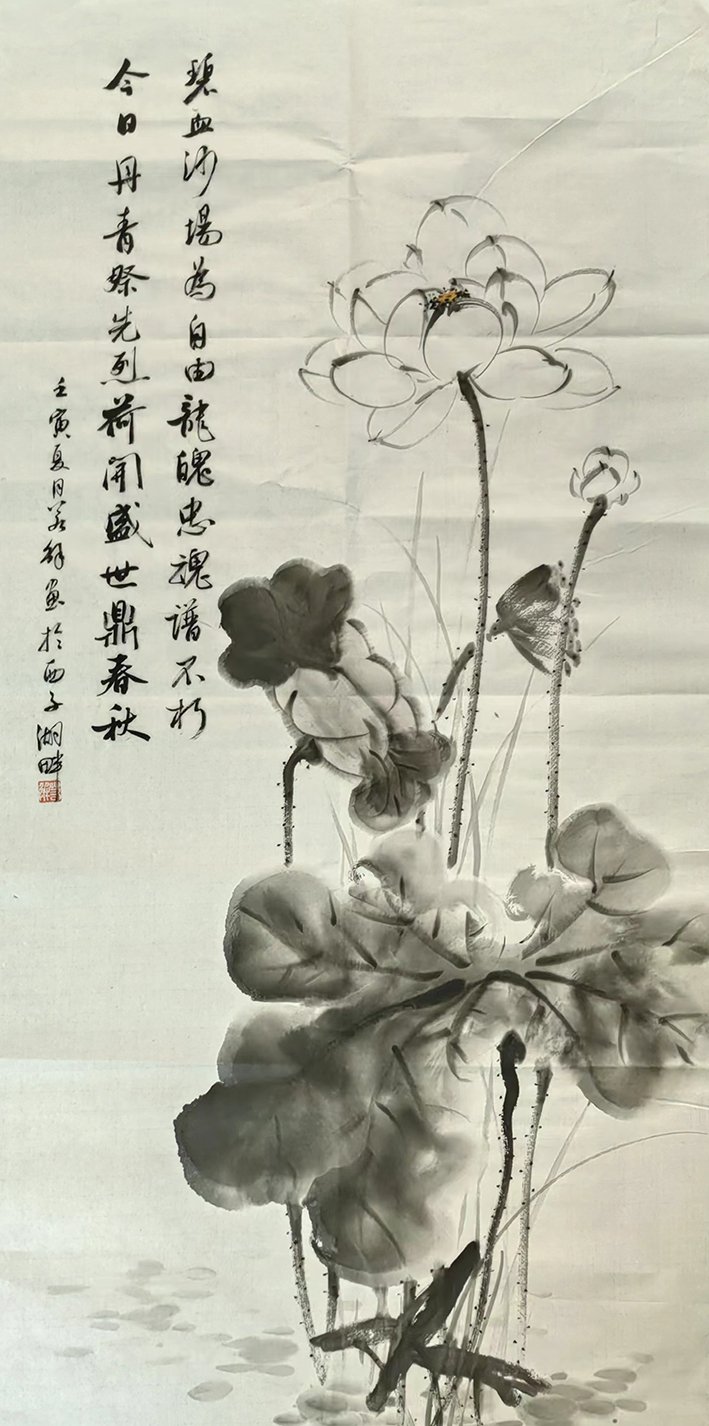 碧血沙場為自由龍魄忠魂譜不朽
今日丹青祭先烈荷開盛世鼎春秋
壬寅夏月若舒畫於西子湖畔